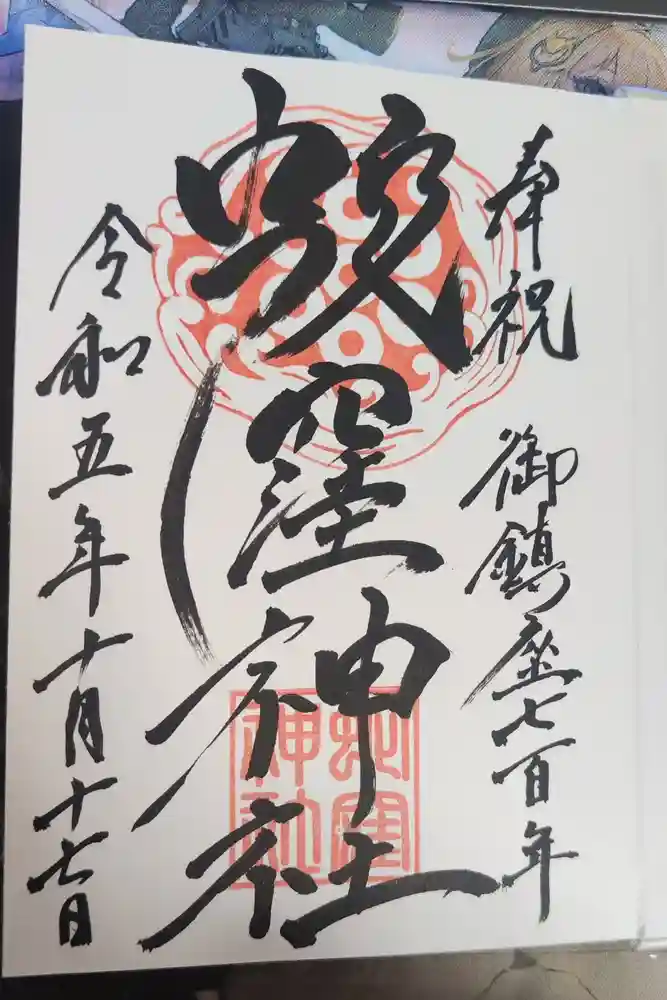 奉祝 御鎮座七百年
蛇窪神社
令和五年十月十七日
蛇窪
神社